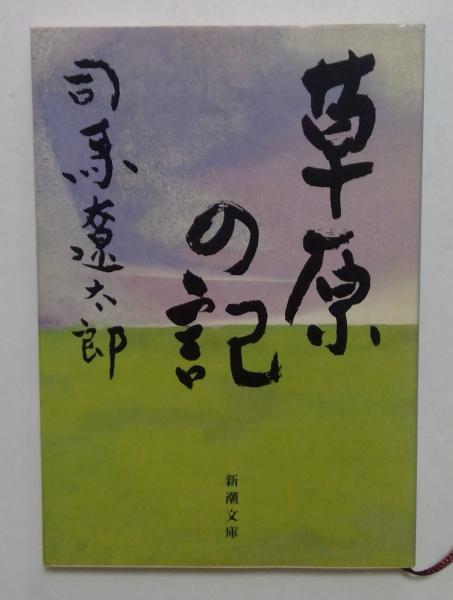 草原
の記
司馬遼太郎
新潮文庫